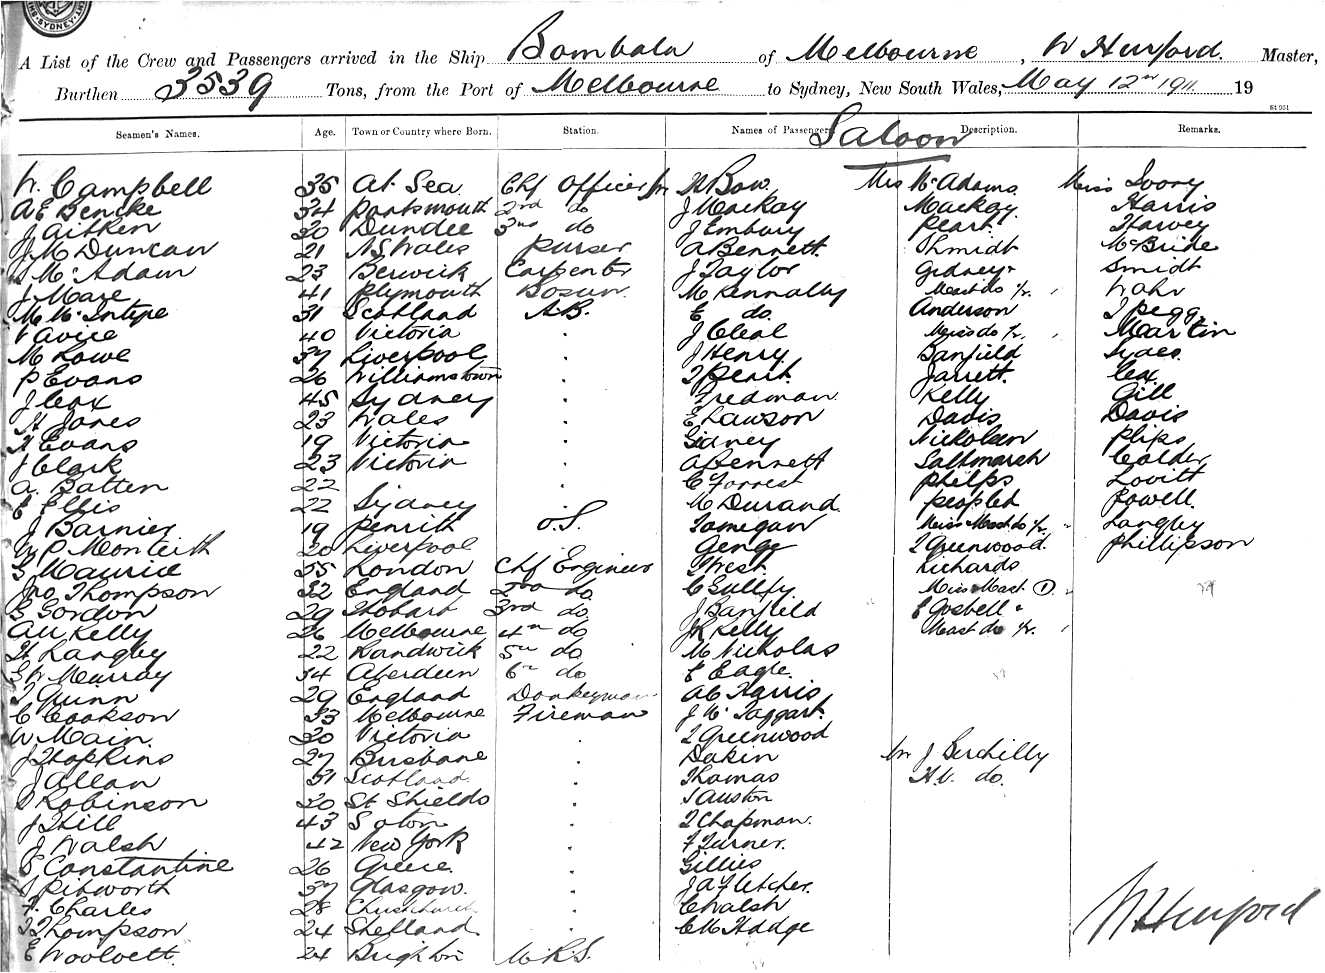 SYDNEY
A List of the Crew and Passengers arrived in the Ship Bombala of Melbourne, W Hurford. Master,
Burthen 3539 Tons, from the Port of Melbourne to Sydney, New South Wales, May 12th 1911. 19
Seamen's Names. Age. Town or Country where Born. Station. Names of Passengers Saloon Description. Remarks.
W. Campbell 35 At Sea. Chf Officer Mr H Bow. Mrs McAdams Miss Ivory
A E Bencke 34 Portsmouth 2nd do J Mackay Mackay. Harris
J Aitken 30 Dundee 3rd do J Embury Peart Harvey
J M Duncan 21 N S Wales Purser A Bennett. Shmidt McBride
McAdam 23 Berwick Carpenter J Taylor Gidney Smidt
J Mare 41 Plymouth Bosun. M Kennally Mast do Yr.
M McIntyre 31 Scotland A.B. E do. Anderson T Pegg
40 Victoria J Cleal Miss do Yr. Martin
M Lowe 37 Liverpool J Henry Banfield
P Evans 26 Williamstown T Peart. Jarrett. Cox
J Cox 45 Sydney Fredman Kelly Gill
H Jones 23 Wales E Lawson Davis Davis
H Evans 19 Victoria Sidney Nickolson Plips
J Clark 23 Victoria A Bennett Saltmarsh Calder
A. Batten 22 C Forrest Phelps Lovitt
E Ellis 22 Sydney M Durand Powell.
J Barnier 19 Penrith O.S. Miss Mast do Yr. Langley
P Monteith 20 Liverpool George T Greenwood. Phillipson
S Maurice 35 London Chf Engineer West Richards
Jno Thompson 32 England 2nd do C Gulley Miss Mast. 1
G Gordon 29 Hobart 3rd do J Banfield E Gosbell
A W Kelly 26 Melbourne 4th do J K Kelly Mast do Yr.
H Langley 22 Randwick 5th do M Nicholas
G W Murray 34 Aberdeen 6th do E Eagle.
T Quinn 29 England Donkeyman A C Harris
C Cookson 33 Melbourne Fireman J McTaggart.
W Main. 30 Victoria T Greenwood
J Hopkins 27 Brisbane Dakin Mr J Serchilly
J Allan 31 Scotland. Thomas H. V. do.
Robinson 20 St Shields S Auston
J Hill 43 Soton T Chapman.
J Walsh 42 New York F Turner.
Constantine 26 Greece Gillies
Pitworth 37 Glasgow. J A Fletcher.
F. Charles 28 Christchurch C Walsh
T Thompson 24 Shetland C M Hodge
E Woolvett. 24 Brighton M.R.S.
W Hurford